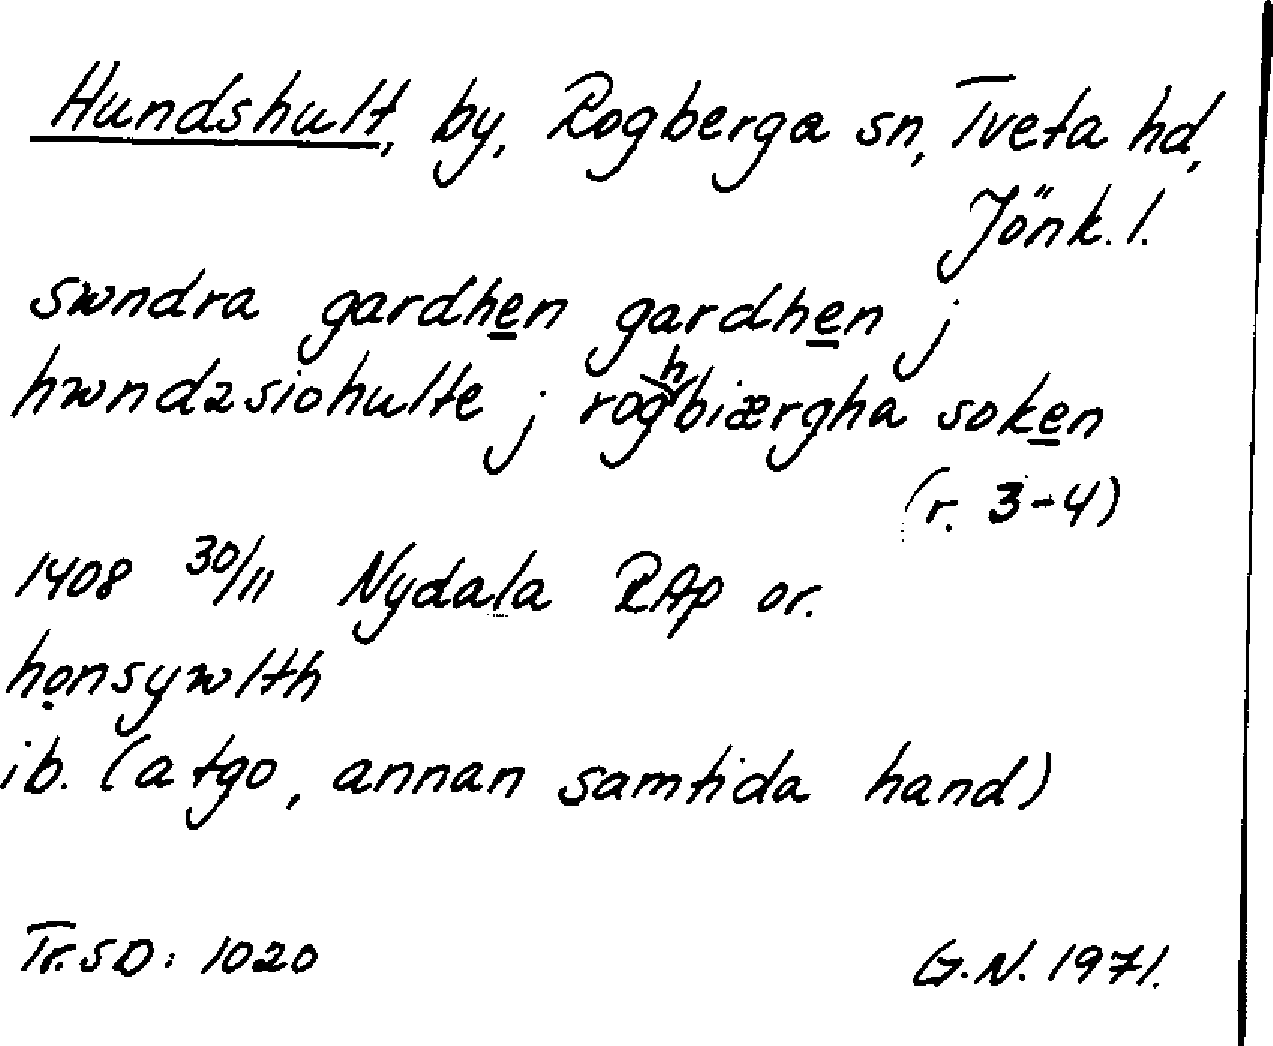 Hundshult, by, Rogberga sn, Tveta hd,
Jönk. l.
swndra gardhen gardhen j
hwndzsiohulte j roghbiærgha soken
(r. 3-4)
1408 30/11 Nydala RAp or.
họnsywlth
ib. (a tgo, annan samtida hand)
Tr. SD: 1020 G.N. 1971.